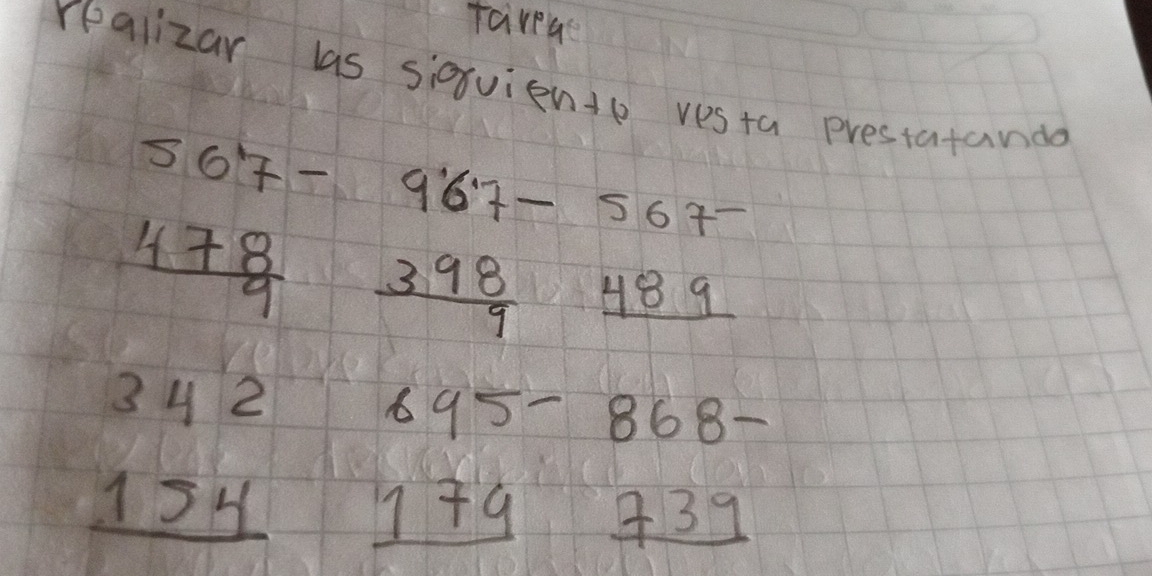 tarea
realizar las siguiente resta prestatando
567- 967- 567-
478 398 489
9 9
342 695- 868-
154 179 739